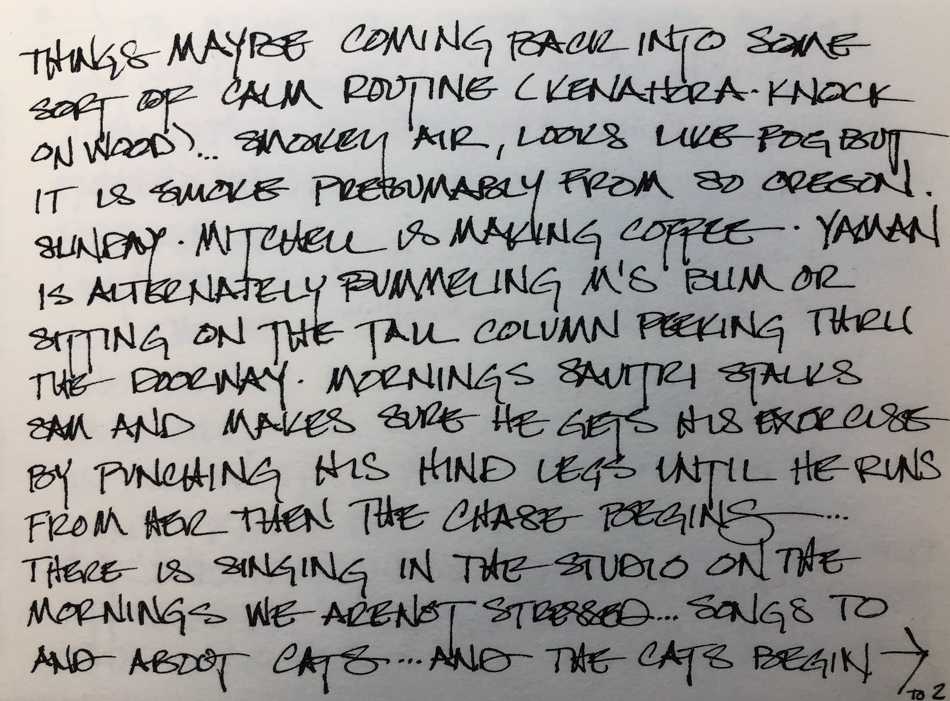 THINGS MAYBE COMING BACK INTO SOME
SORT OF CALM ROUTINE (KENAHORA. KNOCK
ON WOOD)... SMOKEY AIR, LOOKS LIKE FOG BUT
IT IS SMOKE PRESUMABLY FROM SO OREGON.
SUNDAY. MITCHELL IS MAKING COFFEE. YAMAN
IS ALTERNATELY PUMMELING M'S BUM OR
SITTING ON THE TALL COLUMN PEEKING THRU
THE DOORWAY. MORNINGS SAVITRI STALKS
SAM AND MAKES SURE HE GETS HIS EXERCISE
BY PUNCHING HIS HIND LEGS UNTIL HE RUNS
FROM HER THEN THE CHASE BEGINS...
THERE IS SINGING IN THE STUDIO ON THE
MORNINGS WE ARENOT STRESSED... SONGS TO
AND ABOUT CATS... AND THE CATS BEGIN →
TO 2